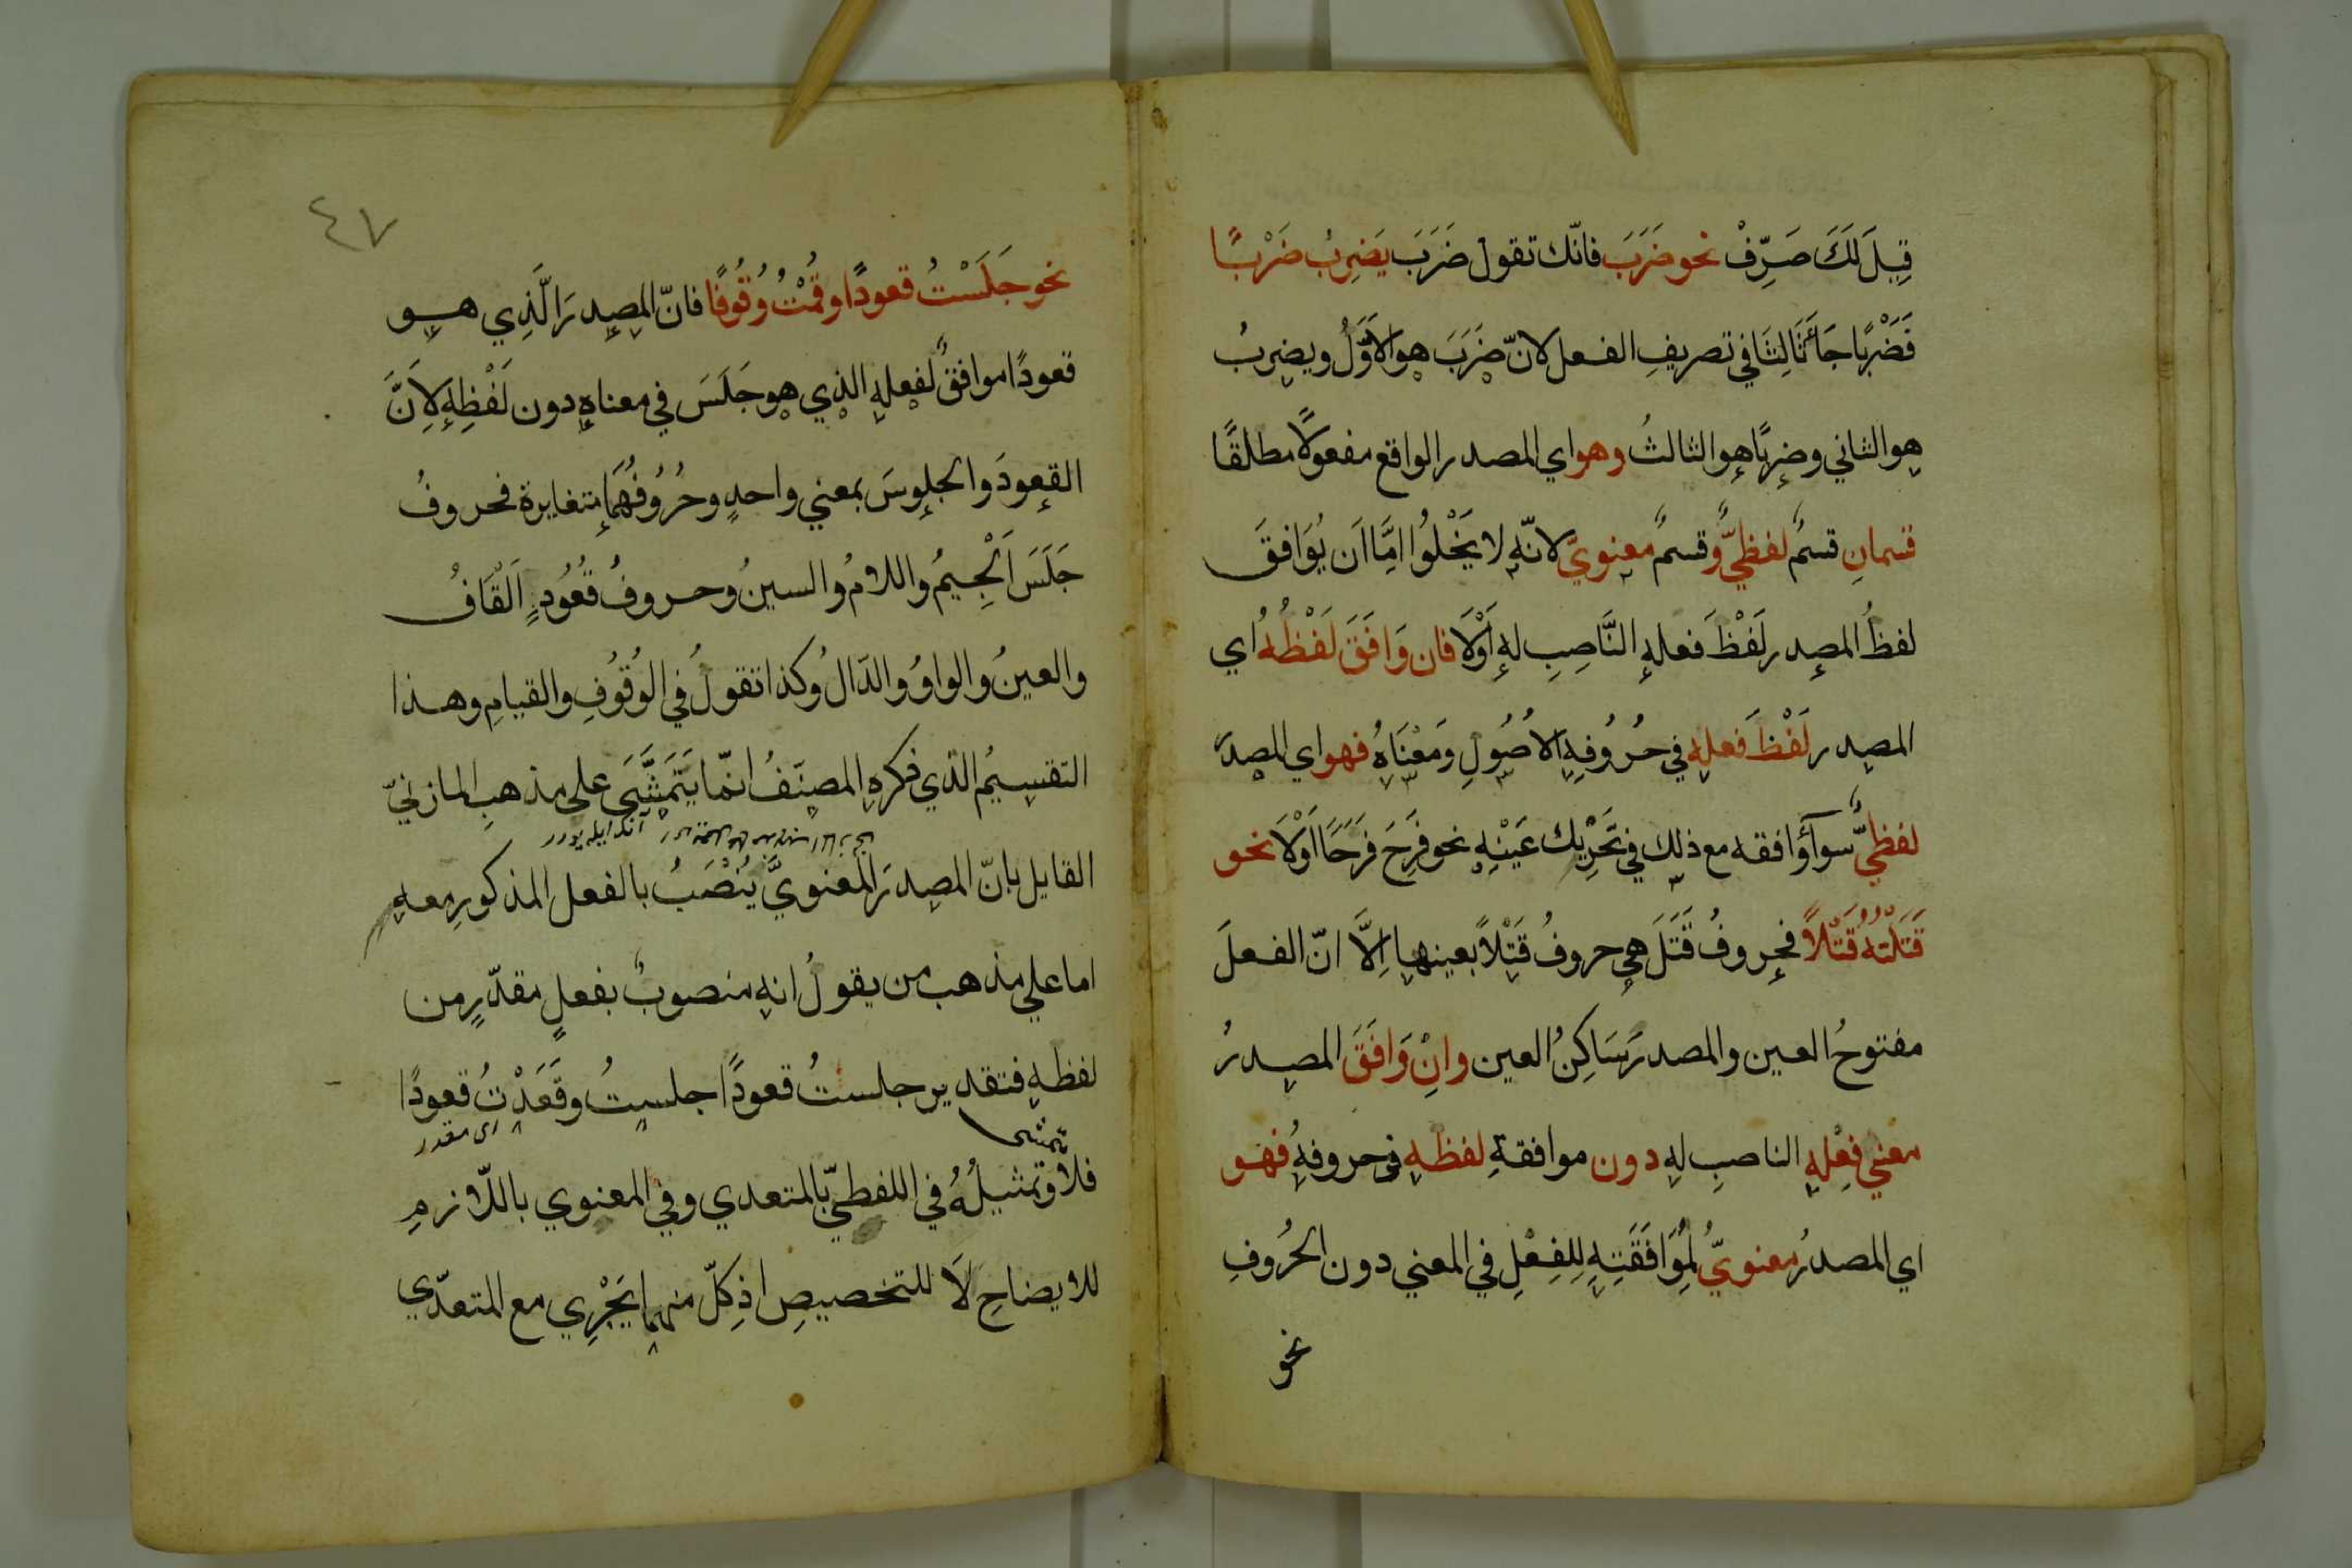 قِيلَ لَكَ صَرِّفْ نحو ضَرَبَ فانّك تقول ضَرَبَ يَضِربُ ضَرْبًا
فَضَرْبًا جَاءَ ثَالِثًا في تصريفِ الفعل لانّ ضَرَبَ هو الاَوَّلُ ويضربُ
هو الثاني وضربًا هو الثالثُ وهو اي المصدر الواقع مفعولًا مطلقًا
قسمانِ قسمٌ لفظيٌّ وقسمٌ معنويٌّ لانّه لا يَخْلُوا امَّا اَن يُوَافقَ
لفظُ المصدر لَفْظَ فعلهِ النَّاصِبِ له اَوْلَا فان وَافَقَ لَفْظُهُ اي
المصدر لَفْظَ فعلهِ في حُرُوفِهِ الاُصُولِ وَمَعْنَاهُ فهو اي المصدرَ
لفظيٌّ سوآءٌ وافقه مع ذلك في تَحْرِيك عَيْنِهِ نحو فَرِحَ فَرَحًا اَوْلَا نحو
قَتَلْتُهُ قَتْلًا فحروفُ قَتَلَ هي حروفُ قَتْلًا بعينها اِلَّا انّ الفعلَ
مفتوحُ العين والمصدرَ سَاكِنُ العين وانْ وَافَقَ المصدرُ
معني فِعْلهِ الناصبِ لهِ دون موافقةِ لفظهِ في حروفهِ فهو
اي المصدرُ معنويٌّ لِمُوَافَقَتِهِ لِلفِعْلِ في المعني دون الحُرُوفِ
نحو
٤٧
نحو جَلَسْتُ قعودًا وقُمْتُ وُقُوفًا فانّ المصدرَ الَّذِي هو
قعودًا موافقٌ لفعلهِ الذي هو جَلَسَ في معناهِ دون لَفْظِهِ لِاَنَّ
القعودَ والجلوسَ بمعني واحدٍ وحُرُوفُهُمَا متغايرة فحروفُ
جَلَسَ اَلْجِيمُ واللامُ والسينُ وحروفُ قُعُودٍ اَلْقَافُ
والعينُ والواوُ والدّالُ وكذا تقولُ في الوُقُوفِ والقيامِ وهذا
التقسيمُ الذي ذكره المصنّفُ انّما يَتَمَشَّى على مذهبِ المازنيّ
القايل بانّ المصدرَ المعنويَّ يُنْصَبُ بالفعل المذكورِ معهِ
اما علي مذهب من يقولُ انه منصوبٌ بفعلٍ مقدّرٍ من
لفظهِ فتقدير جلستُ قعودًا جلستُ وقَعَدْتُ قعودًا
اى مقدر
يتمشى
فلا وتمثيلُهُ في اللفظيّ بالمتعدي وفي المعنوي باللّازمِ
للايضاحِ لَا للتخصيصِ اذ كلّ منهما يَجْرِي مع المتعدّي